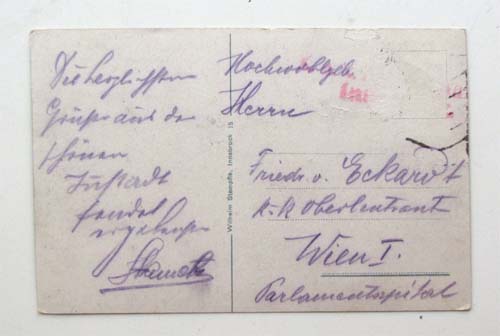 Die herzlichsten
Grüsse aus der
schönen
Innstadt
sendet
ergebenst
Wilhelm Stempfle, Innsbruck 15
Hochwohlgeb.
Herrn
Friedr. v. Eckardt
K. K. Oberleutnant
Wien I.
Parlamentsspital